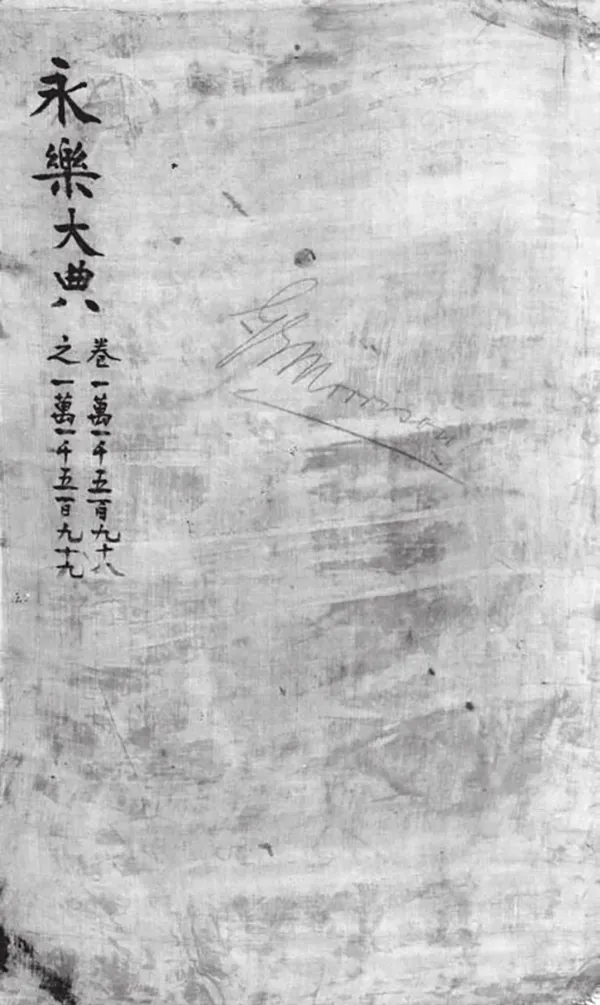 永樂大典
卷一萬一千五百九十八
之一萬一千五百九十九
G E Morrison